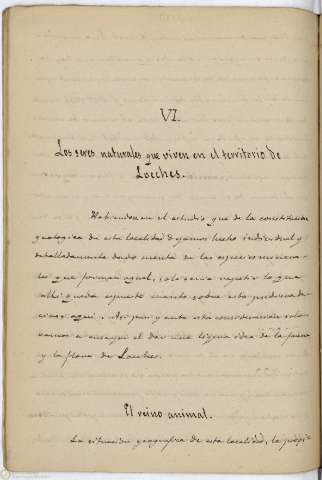 VI.
Los seres naturales que viven en el territorio de
Loeches.
Habiendo en el estudio que de la constitucion
geológica de esta localidad dejamos hecho individual y
detalladamente dado cuenta de las especies minera-
les que forman aquel, ocioso seria repetir lo que
alli queda expuesto cuanto sobre esto pudiera de-
cirse aqui. Asi pues y ante esta consideracion solo
vamos a ensayar el dar una ligera idea de la fauna
y la flora de Loeches.
El reino animal.
La situacion geografica de esta localidad, la